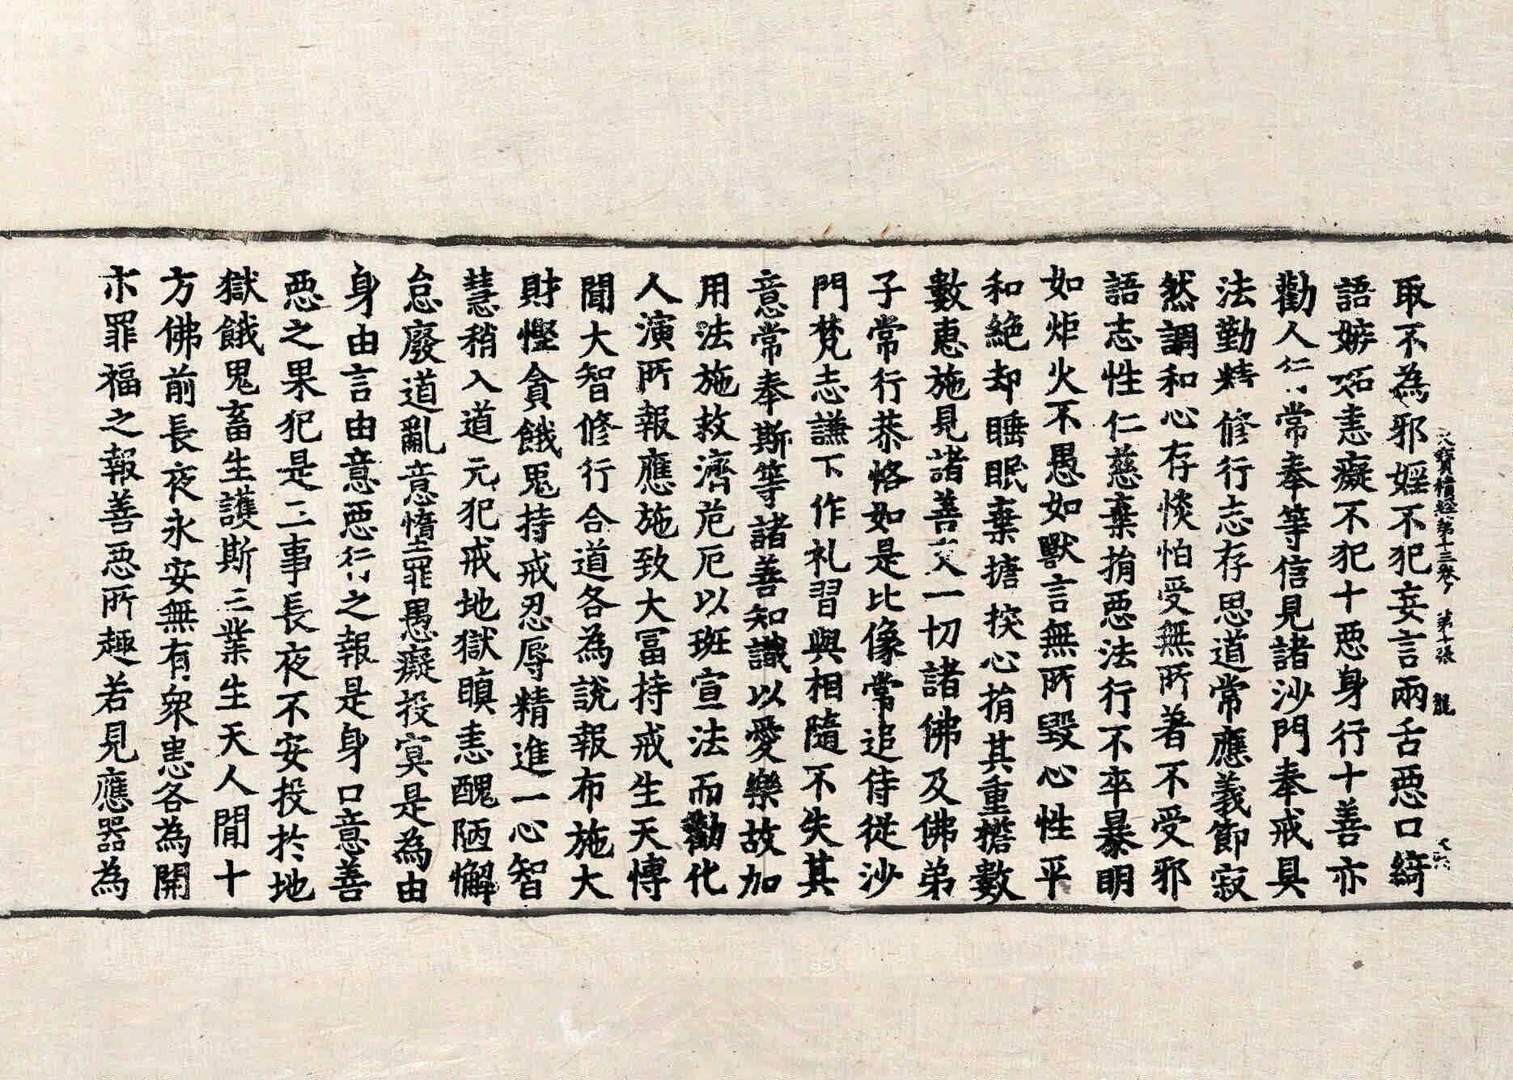 取不為邪婬不犯妄言兩舌惡口綺
大寶積經第十三卷 第十張 龍
語嫉妬恚癡不犯十惡身行十善亦
勸人行常奉等信見諸沙門奉戒具
法勤精修行志存思道常應義節寂
然調和心存惔怕受無所著不受邪
語志性仁慈棄捐惡法行不卒暴明
如炬火不愚如獸言無所毀心性平
和絕却睡眠棄捨揬心捐其重擔數
數惠施見諸善友一切諸佛及佛弟
子常行恭恪如是比像常追侍從沙
門梵志謙下作礼習與相隨不失其
意常奉斯等諸善知識以愛樂故加
用法施救濟危厄以班宣法而勸化
人演所報應施致大富持戒生天博
聞大智修行合道各為說報布施大
財慳貪餓鬼持戒忍辱精進一心智
慧稍入道元犯戒地獄瞋恚醜陋懈
怠廢道亂意墮罪愚癡投冥是為由
身由言由意惡行之報是身口意善
惡之果犯是三事長夜不安投於地
獄餓鬼畜生護斯三業生天人間十
方佛前長夜永安無有衆患各為開
示罪福之報善惡所趣若見應器為